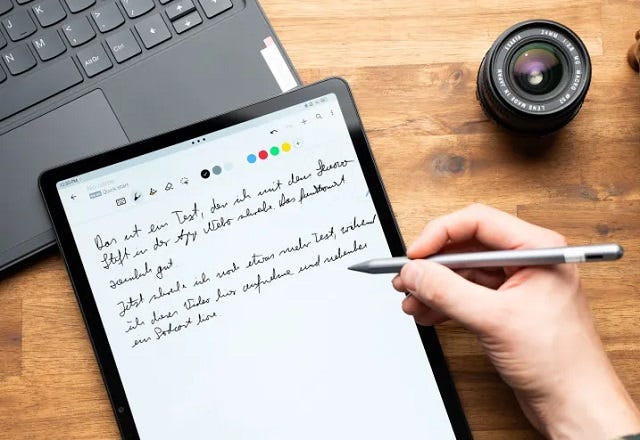 Das ist ein Test, den ich mit dem Lenovo
Stift in der App Nebo schreibe. Das funktioniert
ziemlich gut.
Jetzt schreibe ich noch etwas mehr Text, während
ich dieses Video hier aufnehme und nebenbei
ein Podcast höre.
No name
Quick start
AltGr
Ctrl
N
M
K
L
24MM
LENS MADE IN